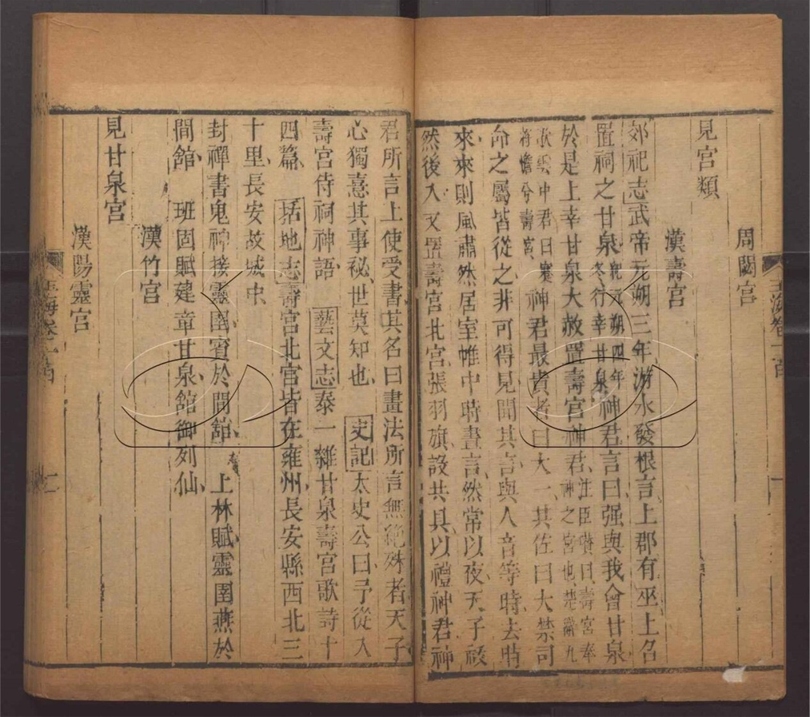 周閟宮
見宮類
漢壽宮
郊祀志武帝元朔三年游水發根言上郡有巫上名
置祠之甘泉紀元朔四年冬行幸甘泉神君言曰强與我會甘泉
於是上幸甘泉大赦置壽宮神君注臣瓚曰壽宮奉神之宮也楚辭九
歌雲中君曰蹇將憺兮壽宮神君最貴者曰大一其佐曰大禁司
命之屬皆從之非可得見聞其言與人音等時去時
來來則風肅然居室帷中時晝言然常以夜天子祓
然後入又置壽宮北宮張羽旗設共具以禮神君神
君所言上使受書其名曰畫法所言無絶殊者天子
心獨憙其事祕世莫知也 史記太史公曰予從入
壽宮侍祠神語 藝文志泰一雜甘泉壽宮歌詩十
四篇 括地志壽宮北宮皆在雍州長安縣西北三
十里長安故城中
封禪書鬼神接靈圉賓於閒館 上林賦靈圉燕於
閒館 班固賦建章甘泉館御列仙
漢竹宮
見甘泉宮
漢陽靈宮
玉海卷一百
一
二